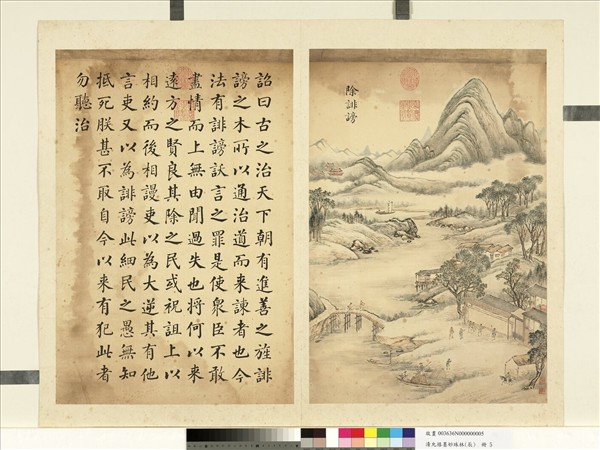 除誹謗
詔曰古之治天下朝有進善之旌誹
謗之木所以通治道而来諫者也今
法有誹謗訞言之罪是使衆臣不敢
盡情而上無由聞過失也将何以来
遠方之賢良其除之民或祝詛上以
相約而後相謾吏以為大逆其有他
言吏又以為誹謗此細民之愚無知
抵死朕甚不取自今以来有犯此者
勿聽治
故畫 003636N000000005
清允禧墨妙珠林(亥) 冊 5